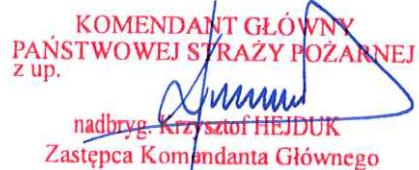 KOMENDANT GŁÓWNY
PAŃSTWOWEJ STRAŻY POŻARNEJ
z up.
nadbryg. Krzysztof HEJDUK
Zastępca Komendanta Głównego